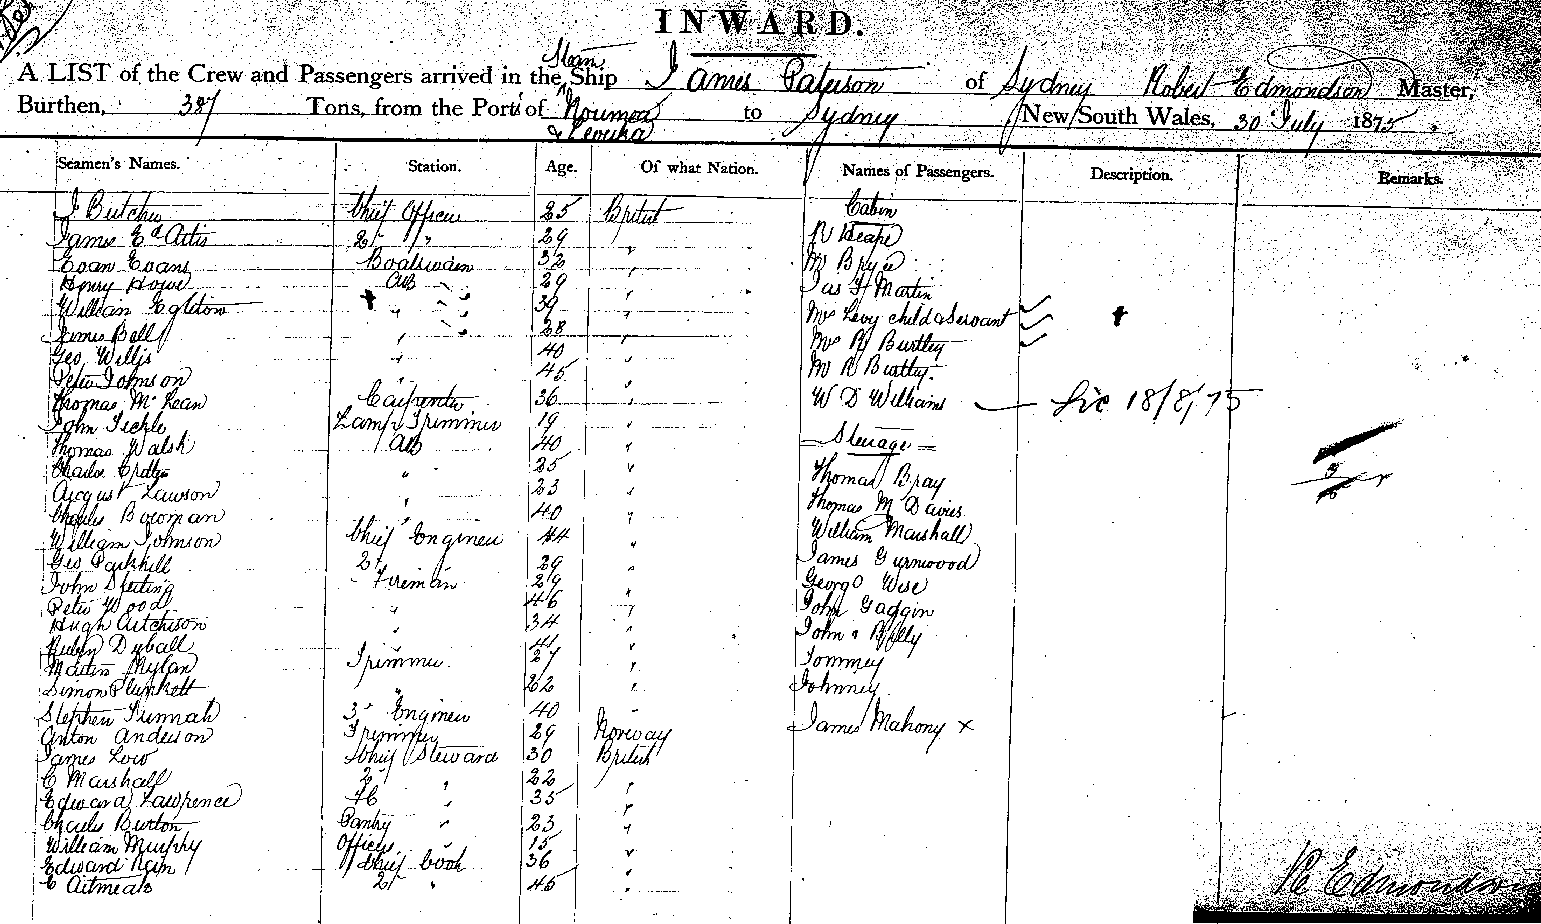 INWARD.
A LIST of the Crew and Passengers arrived in the Steam Ship James Paterson of Sydney Robert Edmondson Master,
Burthen, 387 Tons, from the Port s of Noumea & Levuka to Sydney New South Wales, 30 July 1875.
Seamen's Names. Station. Age. Of what Nation. Names of Passengers. Description. Remarks.
J Butcher Chief Officer 25 British Cabin
James Ed Artis 2d " 29 " R
Evan Evans Boatswain 32 " Mr Bryce
Henry Howe AB 29 " Jas H Martin
William Egleton " 39 " Mrs Levy child & Servant
James Bell " 28 " Mrs R Burtley
Geo Willis " 40 " Mr R Burtley.
Peter Johnson " 45 "
Thomas McLean Carpenter 36 " W D Williams 18/8/75
John Lamp Trimmer 19 "
Thomas Walsh AB 40 " Steerage
Charles " 25 " Thomas Bray
August Lawson " 23 " Thomas M Davies
Charles Bowman " 40 " William Marshall
William Johnson Chief Engineer 44 " James Gurnwood
Geo Parkhill 2d " 29 " George Wise
John Fireman 29 " John Gaggin
Peter Wood " 46 " John & Billy
Hugh Aitchison " 34 " Tommey
Dyball " 41 " Johnney
Martin Mylan Trimmer 27 " James Mahony x
Simon Plunkett " 22 "
Stephen 3d Engineer 40 "
Anton Anderson Trimmer 29 Norway
James Low Chief Steward 30 British
C Marshall 2d " 22 "
Edward Lawrence " 35 "
Charles Burton Pantry " 23 "
William Murphy Officers " 15 "
Edward Chief Cook 36 "
C Aitmeals 2d " 45 "
R Edmondson